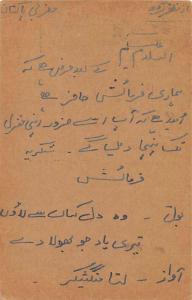 السلام علیکم
کے بعد عرض ہے کہ
ہماری فرمائش حاضر ہے
امید ہے کہ آپ اسے ضرور اپنی منزل
تک پہنچا دیں گے۔ شکریہ
فرمائش
بول - وہ دل کہاں سے لاؤں
تیری یاد جو بھلا دے
آواز - لتا منگیشکر